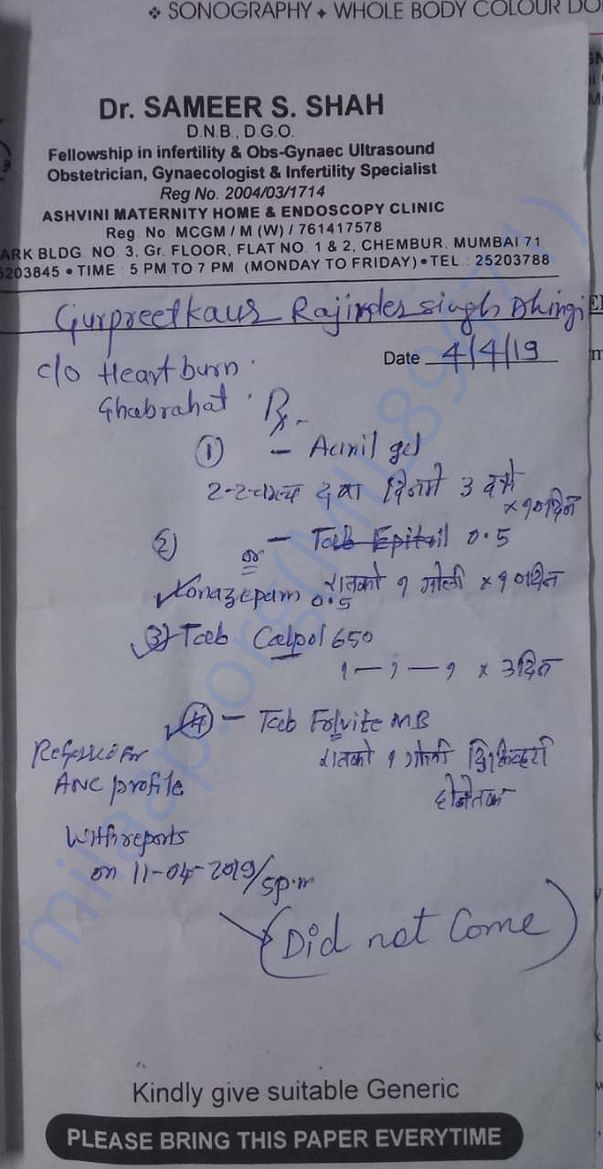 ❖ SONOGRAPHY ✦ WHOLE BODY COLOUR DO
Dr. SAMEER S. SHAH
D.N.B., D.G.O.
Fellowship in infertility & Obs-Gynaec Ultrasound
Obstetrician, Gynaecologist & Infertility Specialist
Reg No. 2004/03/1714
ASHVINI MATERNITY HOME & ENDOSCOPY CLINIC
Reg. No. MCGM / M (W) / 761417578
ARK BLDG. NO. 3, Gr. FLOOR, FLAT NO. 1 & 2, CHEMBUR, MUMBAI 71
5203845 • TIME : 5 PM TO 7 PM (MONDAY TO FRIDAY) • TEL : 25203788
Gurpreetkaur Rajinder singh Dhingi
Date 4/4/19
c/o Heart burn
Ghabrahat Rx
① - Acinil gel
२-२ चमच दवा दिनमे 3 × १० दिन
② - Tab 0.5
or
Lonazepam 0.5 रातको १ गोली × १० दिन
③ Tab Calpol 650
१ — १ — १ × 3 दिन
④ - Tab Folvite MB
रातको १ गोली डिलिव्हरी
होनेतक
Referred for
ANC profile
With reports
on 11-04-2019/5p.m
(Did not come)
Kindly give suitable Generic
PLEASE BRING THIS PAPER EVERYTIME